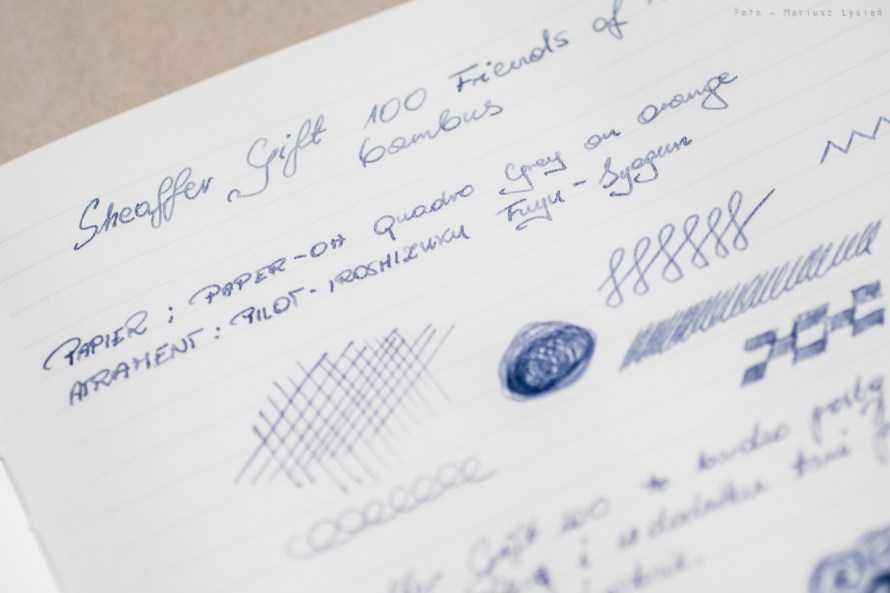 Foto - Mariusz Łysień
Sheaffer Gift 100 Friends of
bambus
PAPIER : PAPER-OH Quadro Grey on orange
ATRAMENT : PILOT-IROSHIZUKU Fuyu-Syogun
Gift 100 to bardzo
i w dodatku